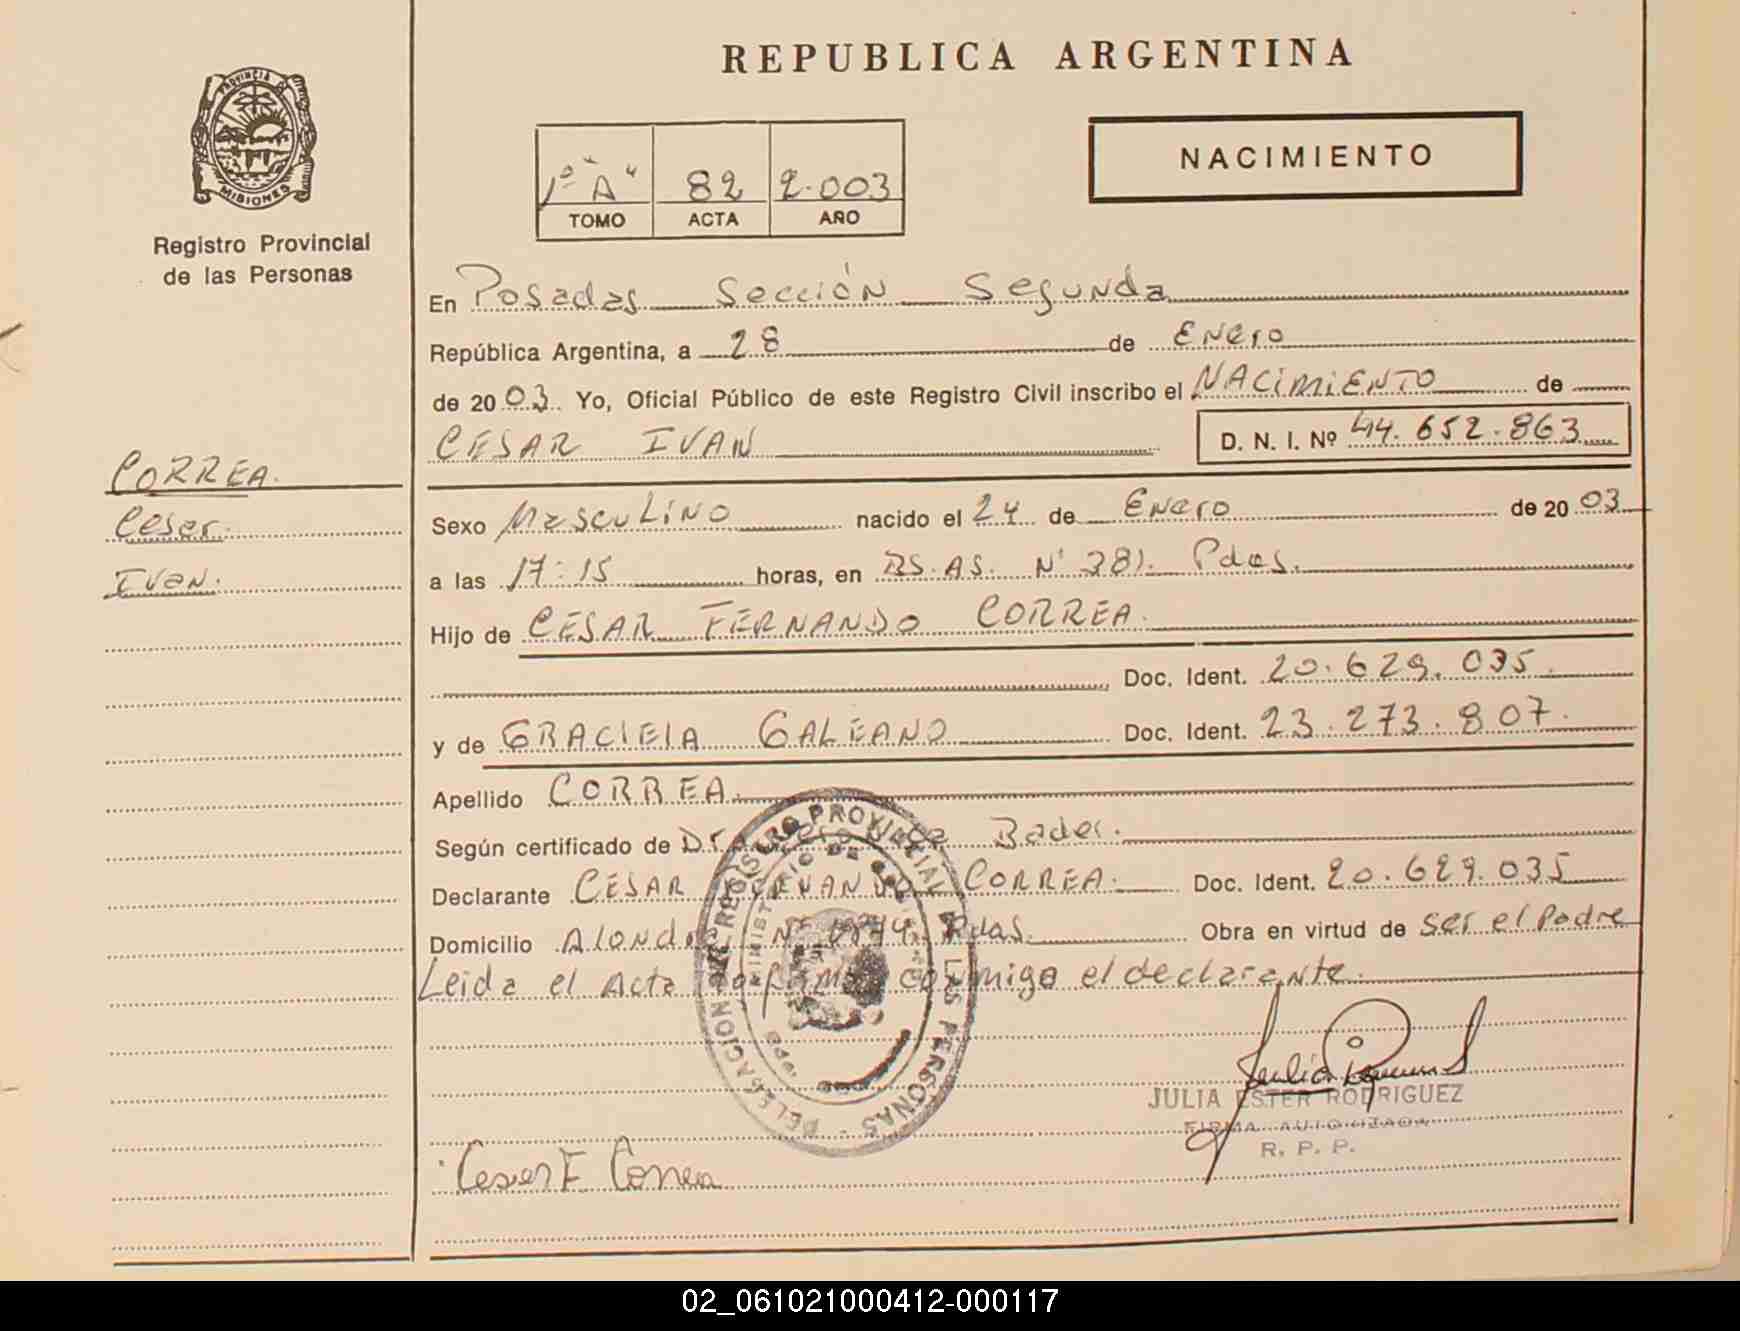 REPUBLICA ARGENTINA
PROVINCIA DE
MISIONES
Registro Provincial
de las Personas
1º "A" 82 2.003
TOMO ACTA AÑO
NACIMIENTO
En Posadas Sección Segunda
República Argentina, a 28 de Enero
de 2003 Yo, Oficial Público de este Registro Civil inscribo el NACIMIENTO de
CESAR IVAN D. N. I. Nº 44.652.863
CORREA.
Cesar
Ivan.
Sexo Masculino nacido el 24 de Enero de 2003
a las 17:15 horas, en BS.AS. Nº 381. Pdas.
Hijo de CESAR FERNANDO CORREA.
Doc. Ident. 20.629.035.
y de GRACIELA GALEANO Doc. Ident. 23.273.807.
Apellido CORREA.
Según certificado de Dr. Bader.
Declarante CESAR FERNANDO CORREA. Doc. Ident. 20.629.035
Domicilio Pdas. Obra en virtud de ser el Padre
Leida el Acta la firma conmigo el declarante.
DELEGACION DEL REGISTRO PROVINCIAL DE LAS PERSONAS
MINISTERIO DE
JULIA ESTER RODRIGUEZ
FIRMA AUTORIZADA
R. P. P.
Cesar F Correa
02_061021000412-000117